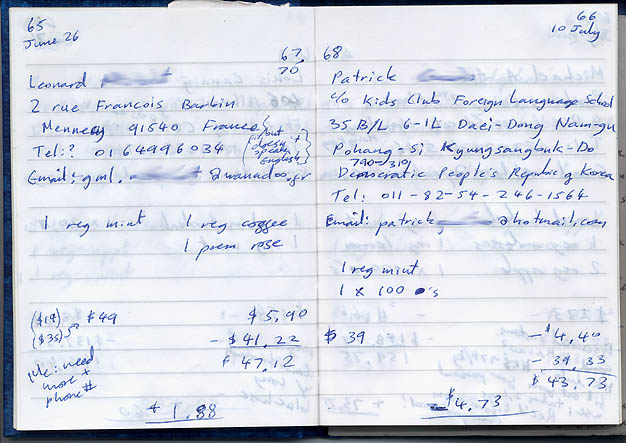 65
June 26
67.
70.
Leonard
2 rue Francois Barbin
Mennecy 91540 France
Tel:? 0164996034
(but doesn't speak English)
Email: gml. @wanadoo.fr
1 reg mint 1 reg coffee
1 prem rose
($14)
($35) $49 $5.90
- $41.22
$47.12
need more + phone #
$1.88
66
10 July
68
Patrick
c/o Kids Club Foreign Language School
35 B/L 6-1L Daei-Dong Nam-gu
Pohang-Si Kyungsangbuk-Do
790-319
Democratic People's Republic of Korea
Tel: 011-82-54-246-1564
Email: patrick @hotmail.com
1 reg mint
1 x 100 's
$39 - $4.40
- 39.33
$43.73
- $4.73